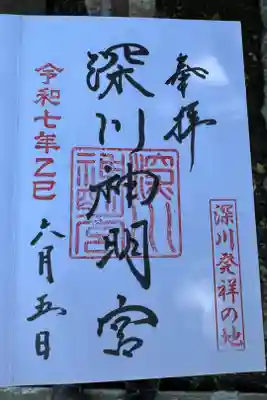 奉拝
深川発祥の地
深川神明宮
深川神明宮
令和七年乙巳
六月五日